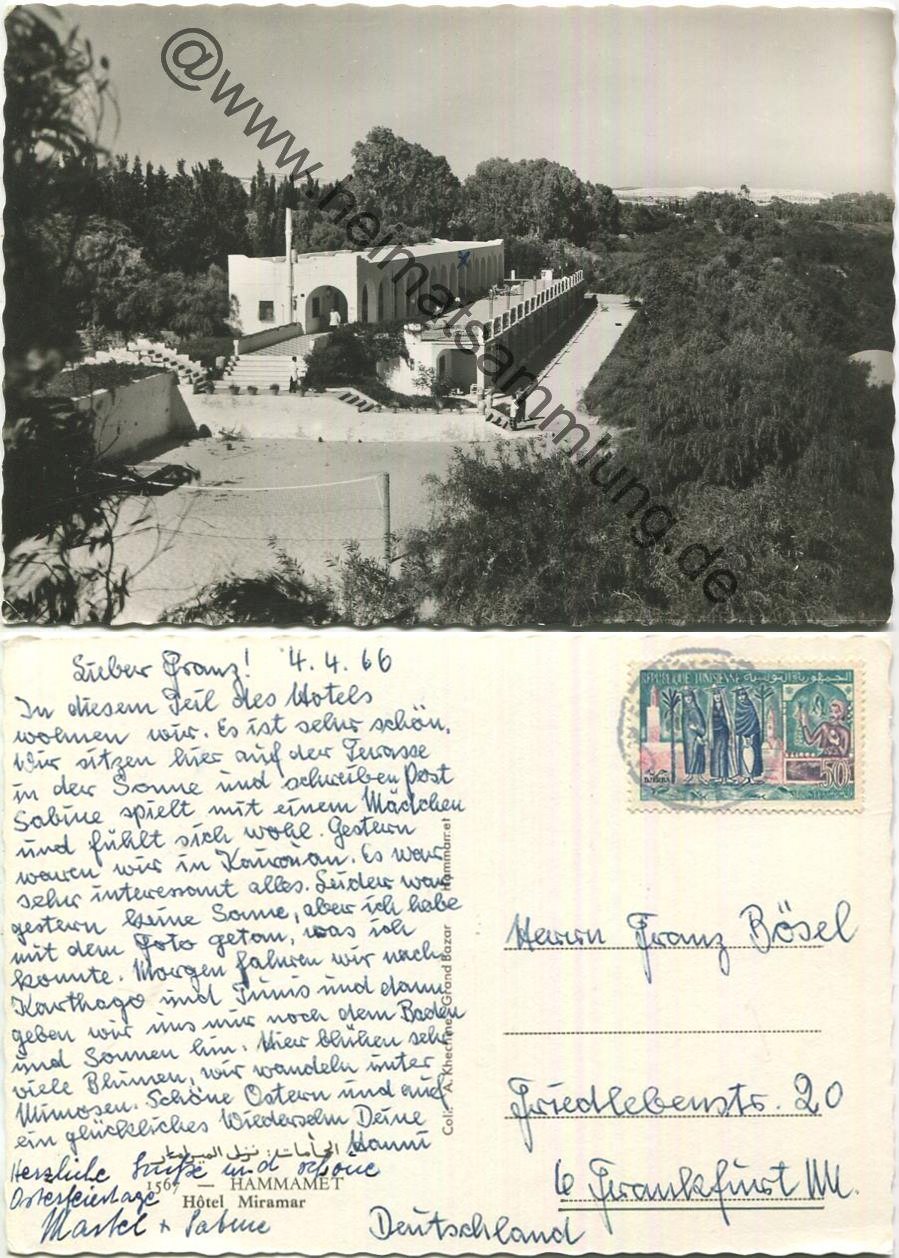 @www.heimatsammlung.de
Lieber Franz! 4.4.66
In diesem Teil des Hotels
wohnen wir. Es ist sehr schön.
Wir sitzen hier auf der Terasse
in der Sonne und schreiben Post
Sabine spielt mit einem Mädchen
und fühlt sich wohl. Gestern
waren wir in Kairouan. Es war
sehr interessant alles. Leider war
gestern keine Sonne, aber ich habe
mit dem Foto getan, was ich
konnte. Morgen fahren wir nach
Karthago und Tunis und dann
geben wir uns nur noch dem Baden
und Sonnen hin. Hier blühen sehr
viele Blumen, wir wandeln unter
Mimosen. Schöne Ostern und auf
ein glückliches Wiedersehn Deine
Hanni
Herzliche Grüße und schöne
Osterfeiertage
+ Sabine
الحمامات: نزل الميرامار
1567 — HAMMAMET
Hôtel Miramar
Coll. A. Khechine Grand Bazar Hammamet
REPUBLIQUE TUNISIENNE الجمهورية التونسية
جربة
DJERBA
50
Herrn Franz Bösel
Friedlebenstr. 20
6 Frankfurt M.
Deutschland